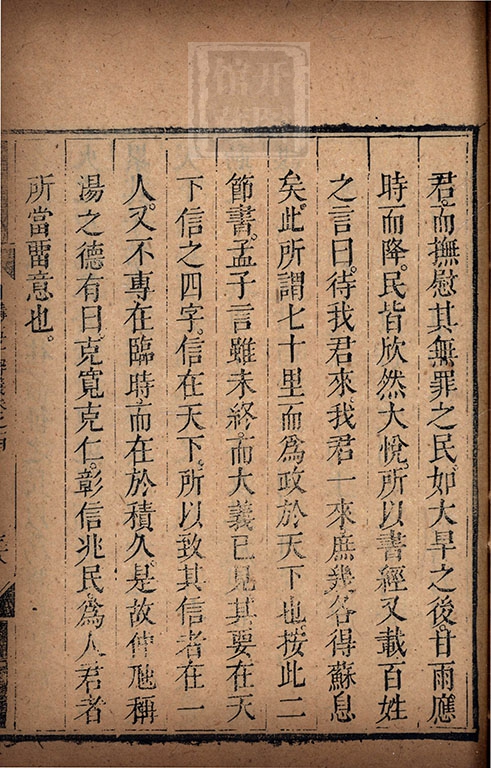 君。而撫慰其無罪之民。如大旱之後。甘雨應
時而降。民皆欣然大悅。所以書經又載百姓
之言曰。待我君來。我君一來。庶幾各得蘇息
矣。此所謂七十里而爲政於天下也。按此二
節書。孟子言雖未終。而大義已見。其要在天
下信之四字。信在天下。所以致其信者在一
人。又不專在臨時。而在於積久。是故仲虺稱
湯之德有曰。克寬克仁。彰信兆民。爲人君者
所當留意也。